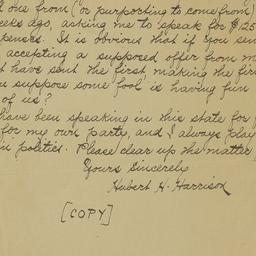 one from (or purporting to come from)
eeks ago, asking me to speak for $125
penses. It is obvious that if you sen
accepting a supposed offer from m
t have sent the first making the fir
u suppose some fool is having fun
of us?
have been speaking in this state for
for my own party, and I always play
in politics. Please clear up the matter
Yours Sincerely
Hubert H. Harrison
[COPY]